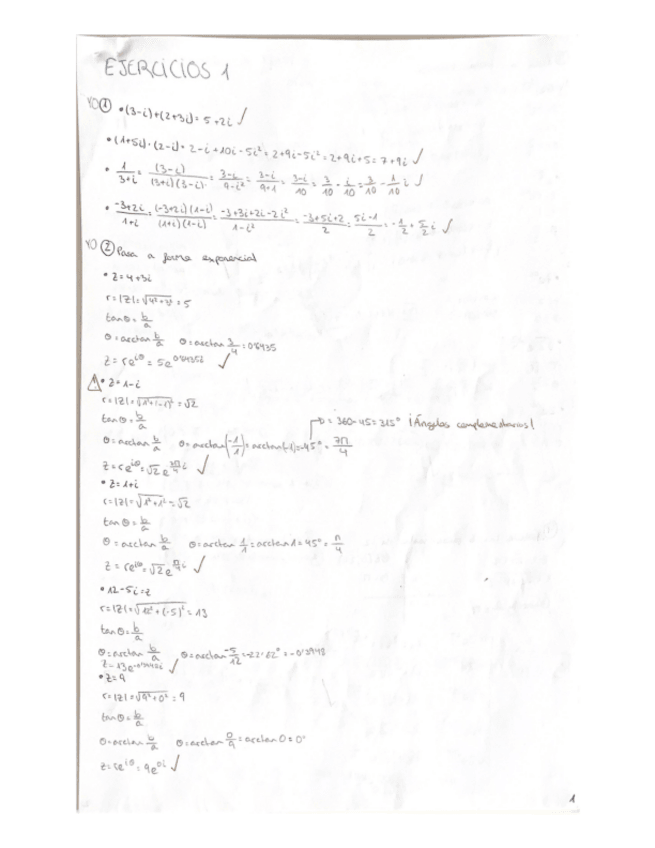 EJERCICIOS 1
YO ① • (3-i)+(2+3i)= 5+2i ✓
• (1+5i)·(2-i)= 2-i+10i-5i²= 2+9i-5i²= 2+9i+5= 7+9i ✓
• 1/(3+i) = (3-i)/((3+i)(3-i)) = (3-i)/(9-i²) = (3-i)/(9+1) = (3-i)/10 = 3/10 - i/10 = 3/10 - 1/10 i ✓
• (-3+2i)/(1+i) = ((-3+2i)(1-i))/((1+i)(1-i)) = (-3+3i+2i-2i²)/(1-i²) = (-3+5i+2)/2 = (5i-1)/2 = -1/2 + 5/2 i ✓
YO ② Pasa a forma exponencial
• Z=4+3i
r=|Z|=√(4²+3²)=5
tanΘ=b/a
Θ=arctan b/a Θ=arctan 3/4=0'6435
Z=re^iΘ=5e^0'6435i ✓
⚠ • Z=1-i
r=|Z|=√(1²+(-1)²)=√2
tanΘ=b/a
= 360-45=315° ¡Ángulos complementarios!
Θ=arctan b/a Θ=arctan(-1/1)=arctan(-1)=-45°=7π/4
Z=re^iΘ=√2e^(7π/4)i ✓
• Z=1+i
r=|Z|=√(1²+1²)=√2
tanΘ=b/a
Θ=arctan b/a Θ=arctan 1/1=arctan1=45°=π/4
Z=re^iΘ=√2e^(π/4)i ✓
• 12-5i=z
r=|Z|=√(12²+(-5)²)=13
tanΘ=b/a
Θ=arctan b/a Θ=arctan -5/12=-22'62°=-0'3948
Z=13e^-0'3948i ✓
• Z=9
r=|Z|=√(9²+0²)=9
tanΘ=b/a
Θ=arctan b/a Θ=arctan 0/9=arctan0=0°
Z=re^iΘ=9e^0i ✓
1